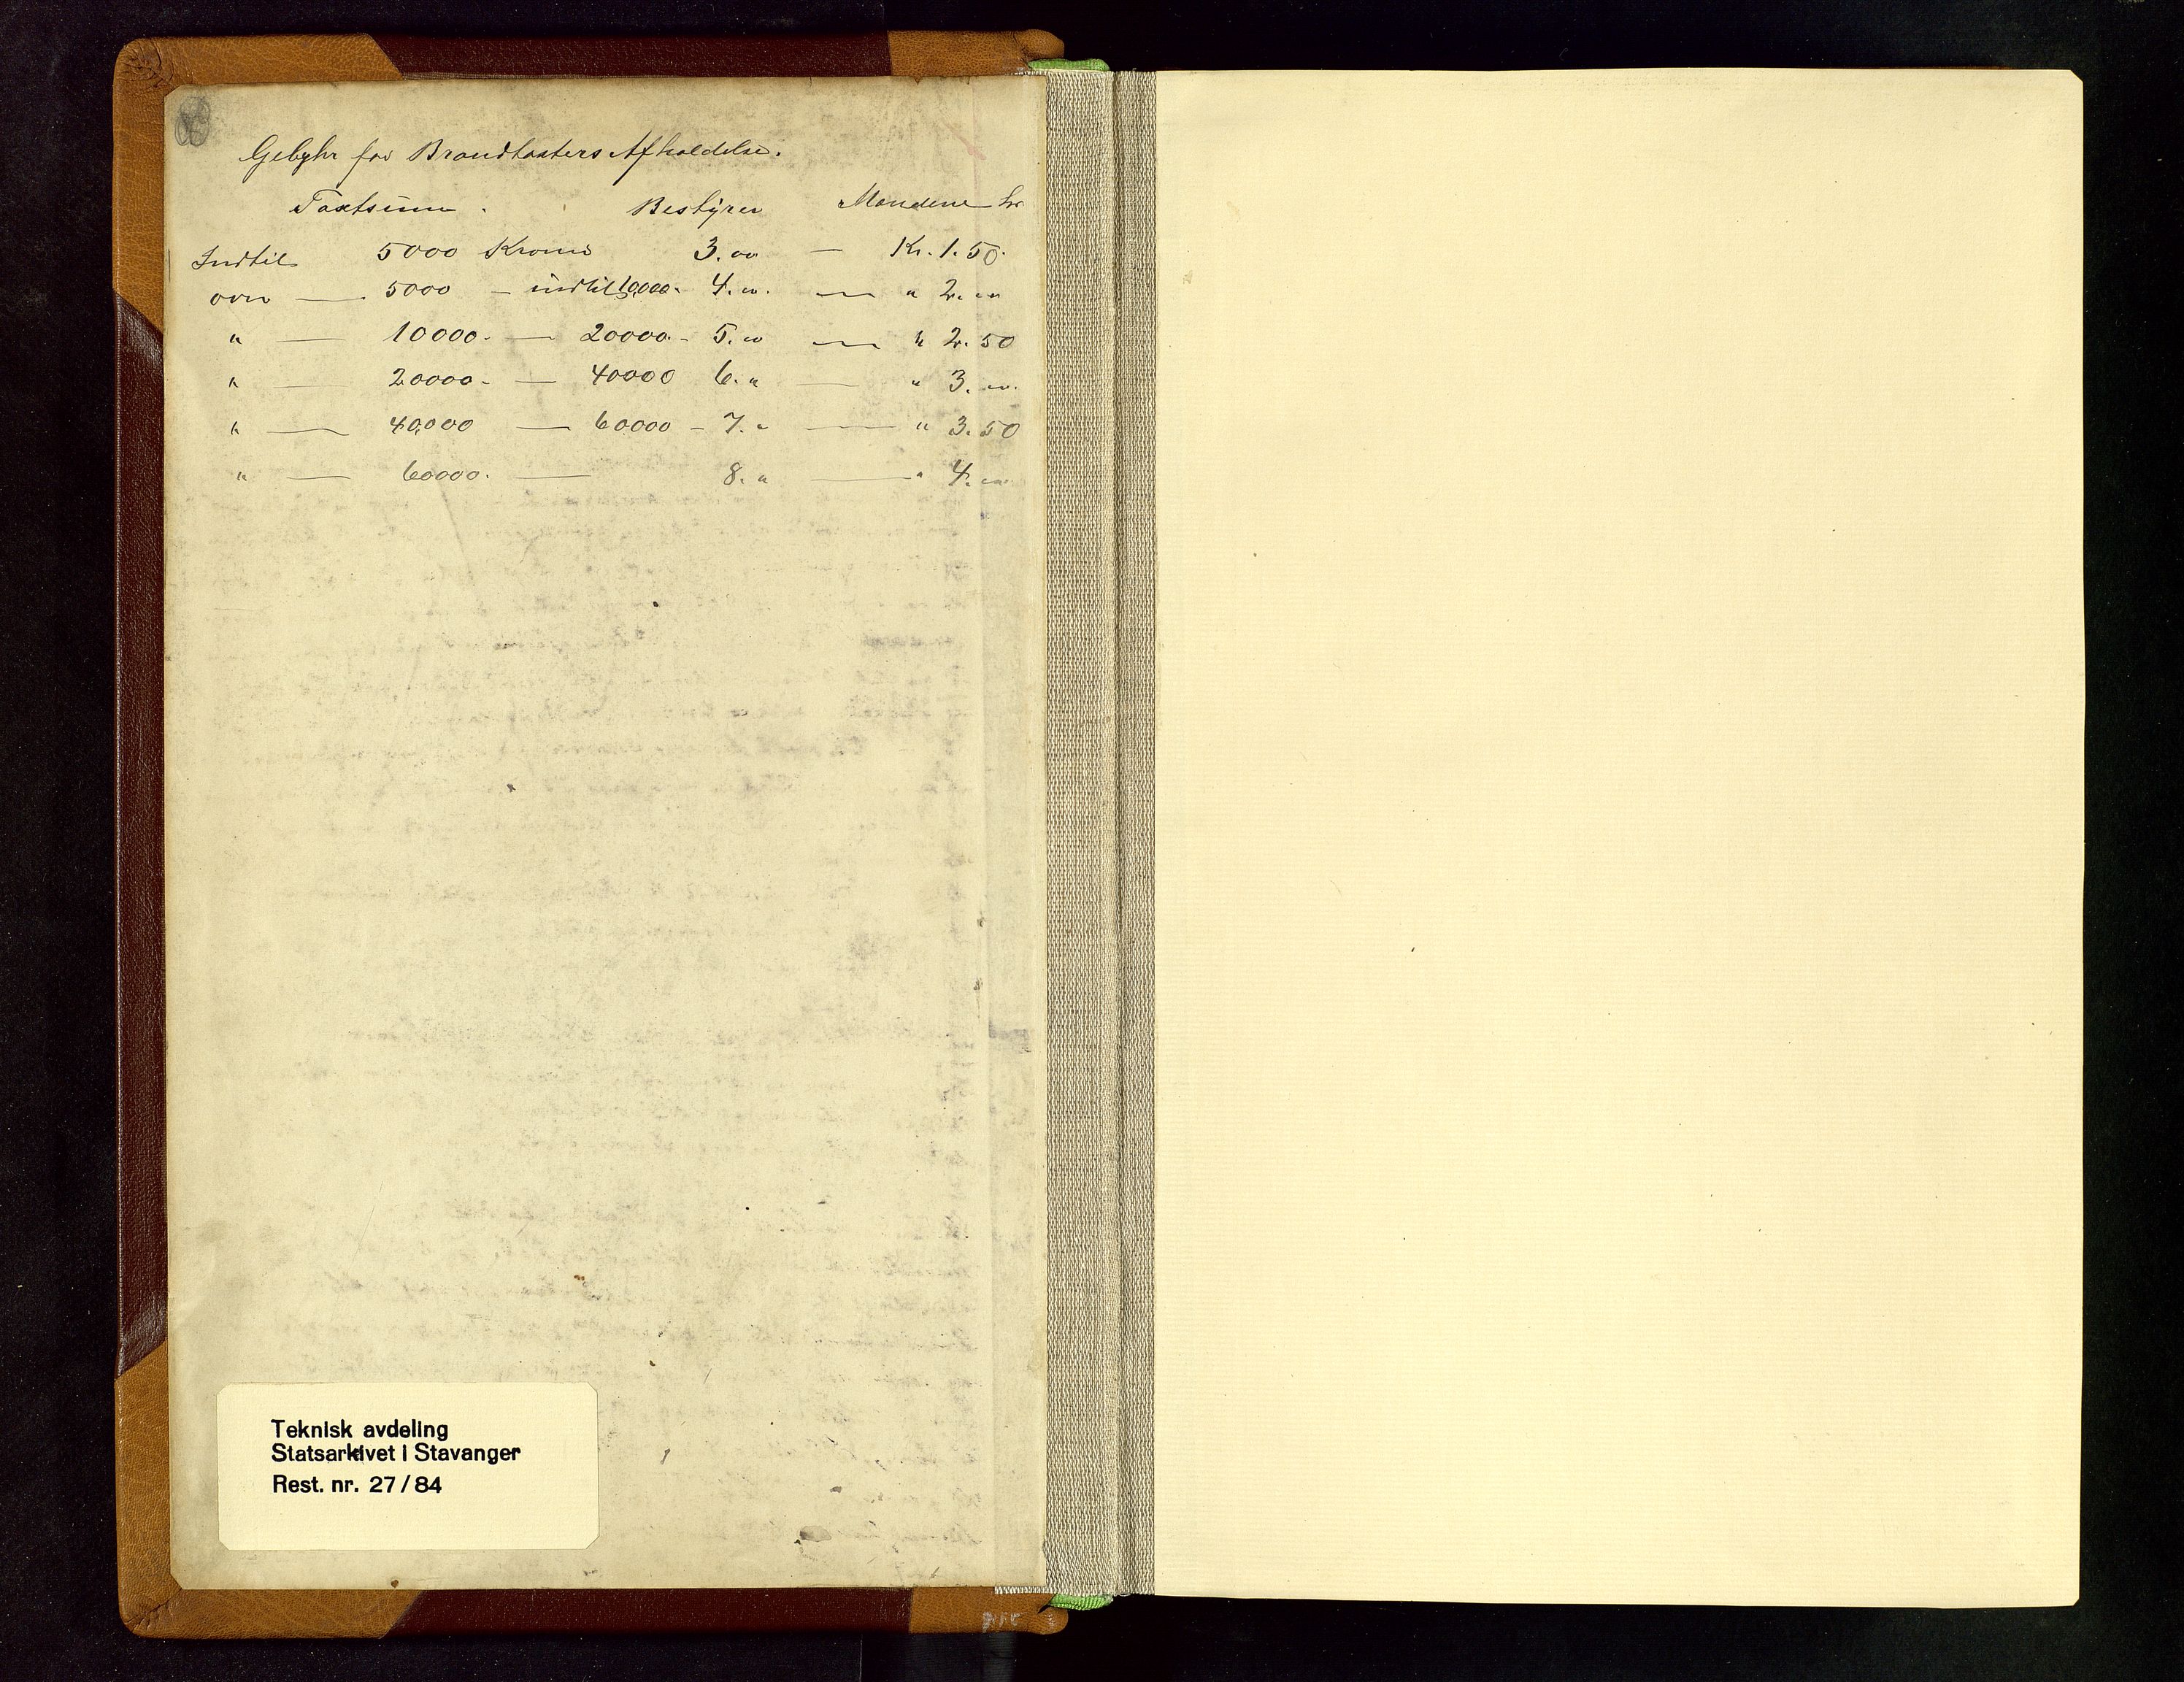 Gebyhr for Brandtaxters Afholdelse.
Taxtsum. Bestyrer Mændene hr
Indtil 5000 Kroner 3.00 — Kr. 1.50.
over — 5000 — indtil 10000 - 4.00. — " 2.00
" — 10000. — 20000. - 5.00 — " 2.50
" — 20000. — 40000 6. " — " 3.00.
" — 40000 — 60000 - 7. " — " 3.50
" — 60000. — 8. " — " 4.00
Teknisk avdeling
Statsarkivet i Stavanger
Rest. nr. 27/84